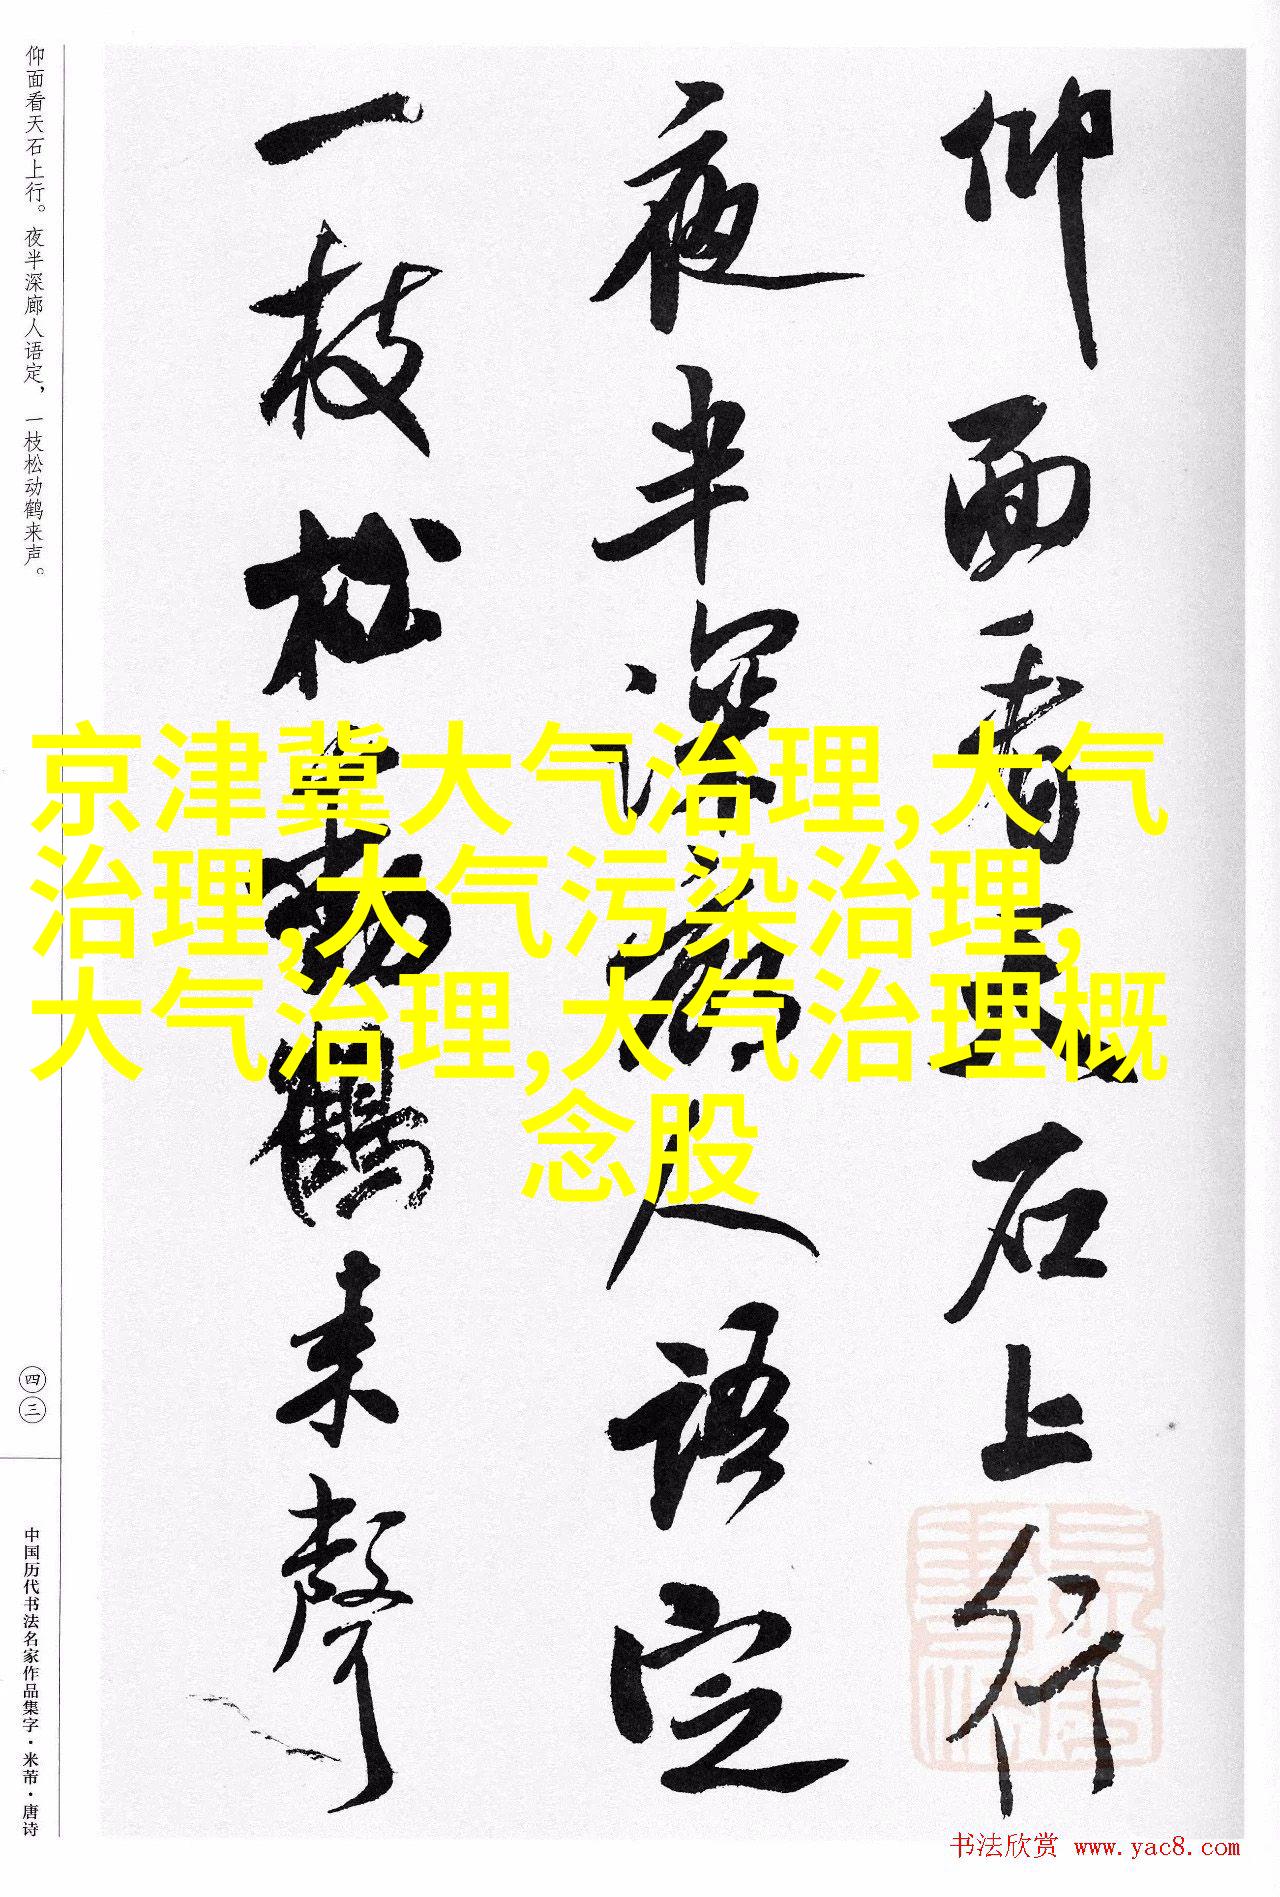 仰面看天石上行
夜半深廊人语定
一枝松动鹤来聲
仰面看天石上行。夜半深廊人语定，一枝松动鹤来声。
四三
中国历代书法名家作品集字·米芾·唐诗
京津冀大气治理,大气
治理,大气污染治理,
大气治理,大气治理概
念股
书法欣赏 www.yac8.com